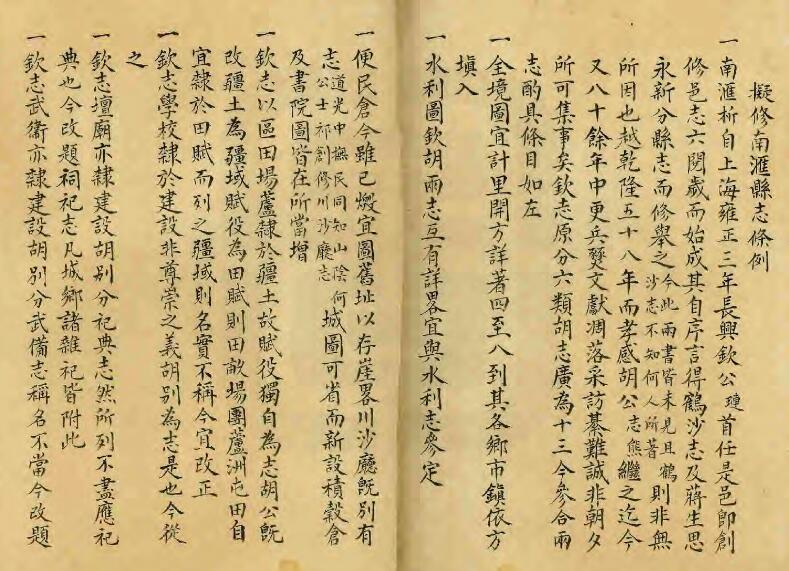 擬修南滙縣志條例
一南滙析自上海雍正三年長興欽公璉首任是邑即創
修邑志六閱歲而始成其自序言得鶴沙志及蔣生思
永新分縣志而修舉之今此兩書皆未見且鶴沙志不知何人所著則非無
所因也越乾隆五十八年而孝感胡公志熊繼之迄今
又八十餘年中更兵燹文獻凋落采訪綦難誠非朝夕
所可集事矣欽志原分六類胡志廣為十三今參合兩
志酌具條目如左
一全境圖宜計里開方詳著四至八到其各鄉市鎮依方
填入
一水利圖欽胡兩志互有詳畧宜與水利志參定
一便民倉今雖已燬宜圖舊址以存崖畧川沙廳既別有
志道光中撫民同知山陰何公士祁創修川沙廳志城圖可省而新設積穀倉
及書院圖皆在所當增
一欽志以區田場蘆隸於疆土故賦役獨自為志胡公既
改疆土為疆域賦役為田賦則田畝場團蘆洲屯田自
宜隸於田賦而列之疆域則名實不稱今宜改正
一欽志學校隸於建設非尊崇之義胡別為志是也今從
之
一欽志壇廟亦隸建設胡別分祀典志然所列不盡應祀
典也今改題祠祀志凡城鄉諸雜祀皆附此
一欽志武衛亦隸建設胡別分武備志稱名不當今改題